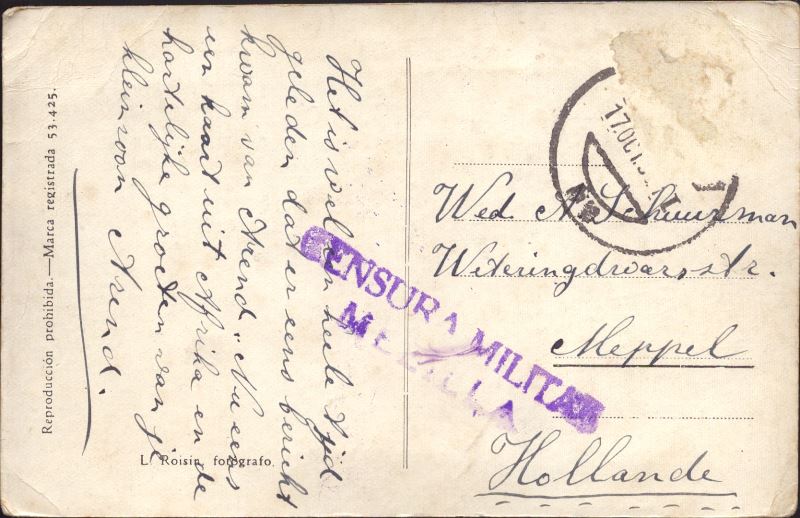 Het is wel een heele tijd
geleden dat er eens bericht
kwam van Arend. Nu eens
een kaart uit Afrika en de
hartelijke groeten van je
kleinzoon Arend.
Reproducción prohibida.—Marca registrada 53.425.
L. Roisin fotógrafo.
CENSURA MILITAR
MELILLA
17.OCT.
Wed. A. Schuurman
Weteringdwarsstr.
Meppel
Hollande